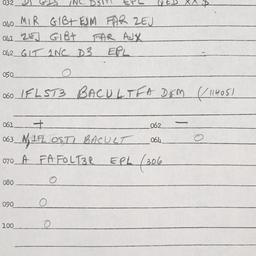 032 INC EPL
040 MIR GIBT EJM FAR 2EJ
041 2EJ GIBT FAR AUX
042 GIT INC D3 EPL
050 O
060 IFLST3 BACULTFA DEM (/114051
061 + 062 —
063 OSTI BACULT 064 O
070 A FAFOLT3R EPL (306
080 O
090 O
100 O